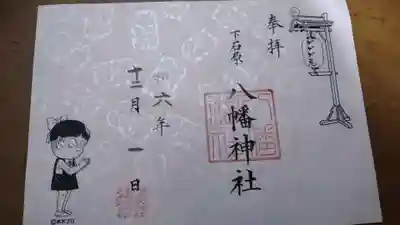 奉拝
下石原
八幡神社
六年
十二月一日
©水木プロ